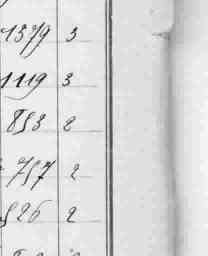 1379 3
1119 3
853 2
757 2
526 2